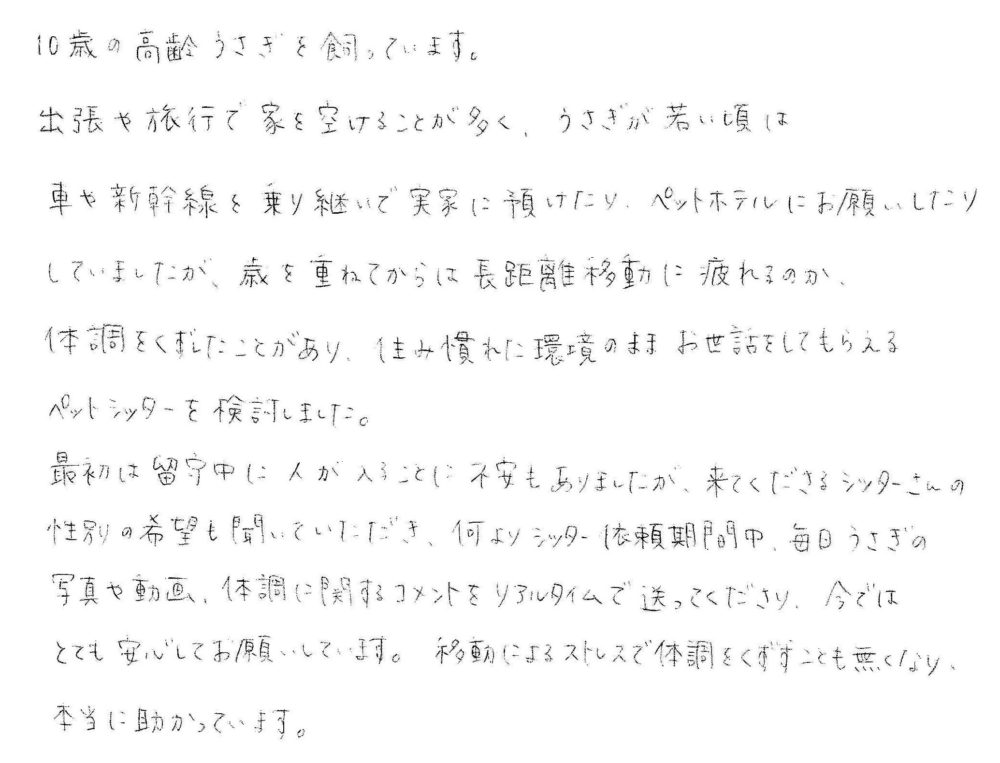 10歳の高齢うさぎを飼っています。
出張や旅行で家を空けることが多く、うさぎが若い頃は
車や新幹線を乗り継いで実家に預けたり、ペットホテルにお願いしたり
していましたが、歳を重ねてからは長距離移動に疲れるのか、
体調をくずしたことがあり、住み慣れた環境のままお世話をしてもらえる
ペットシッターを検討しました。
最初は留守中に人が入ることに不安もありましたが、来てくださるシッターさんの
性別の希望も聞いていただき、何よりシッター依頼期間中、毎日うさぎの
写真や動画、体調に関するコメントをリアルタイムで送ってくださり、今では
とても安心してお願いしています。移動によるストレスで体調をくずすことも無くなり、
本当に助かっています。